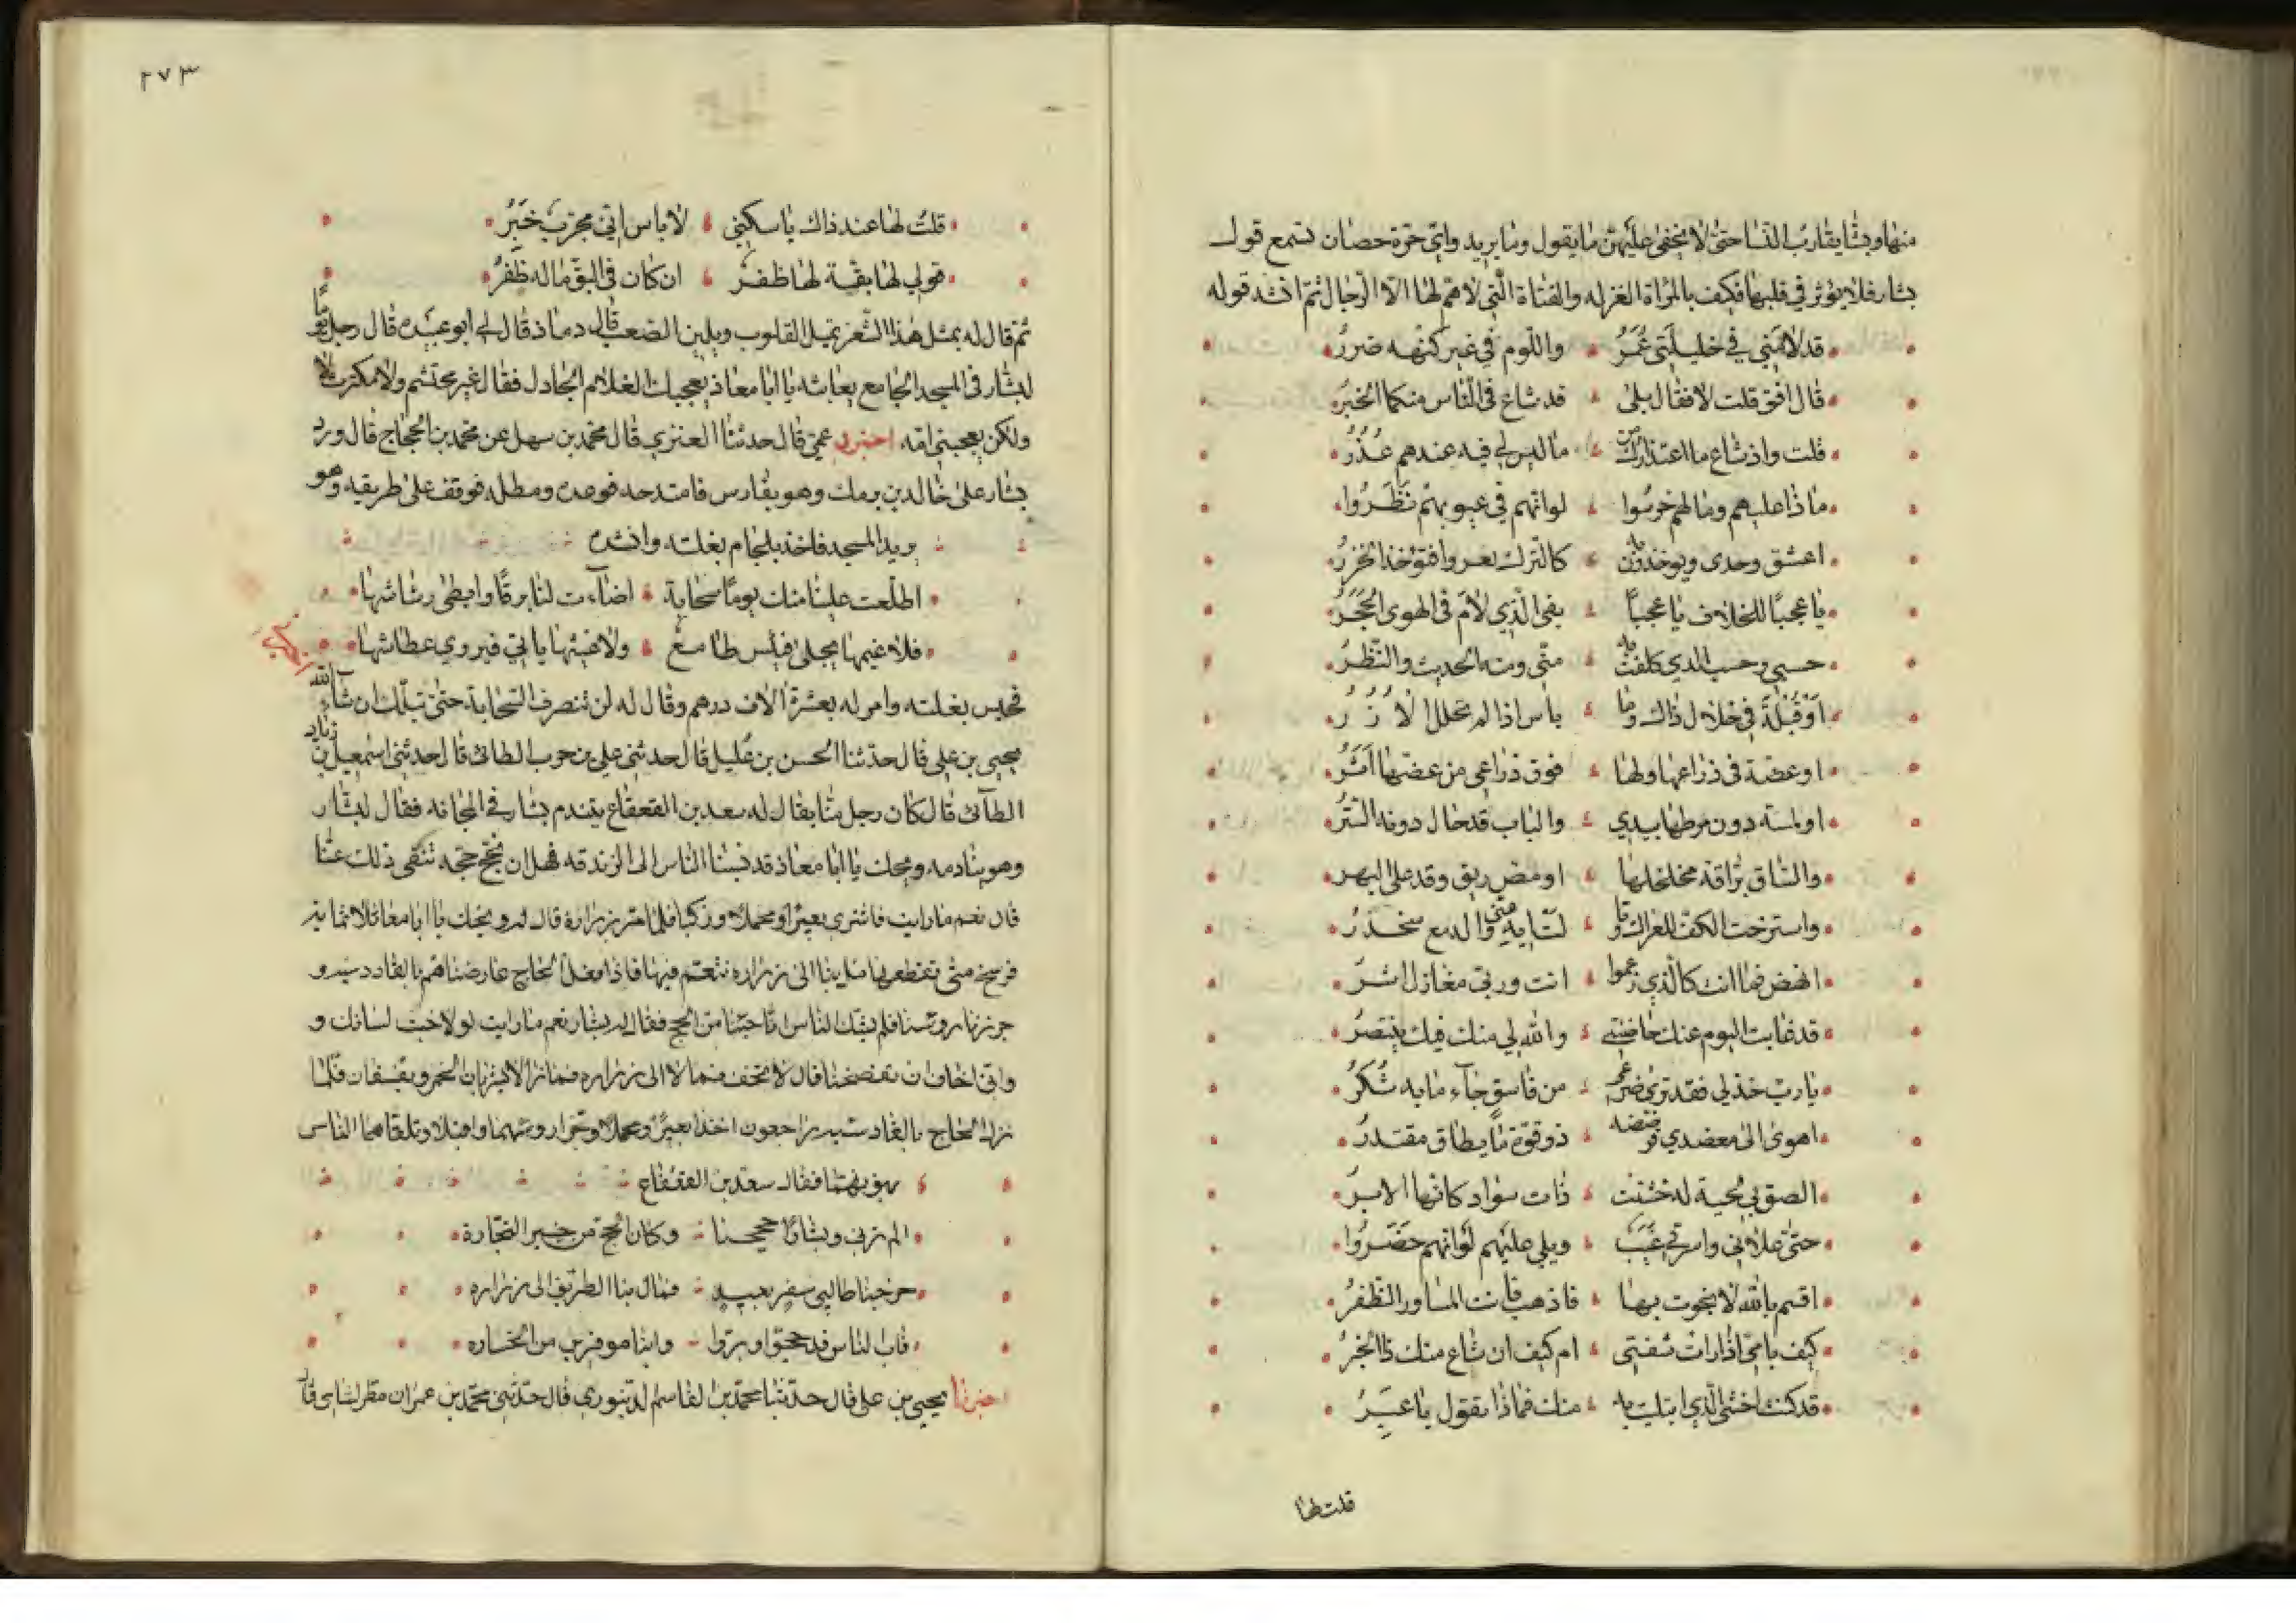 منها وبشا يقارب النسا حتى لا يخفى عليهن ما يقول وما يريد واي حرة حصان تسمع قول
بشار فلا يوثر في قلبها فكيف بالمراة الغزله والفتاة التي لا هم لها الا الرجال ثم انشد قوله
قد لامني في خليلتي عمر واللوم في غير كنهه ضرر
قال افق قلت لا فقال بلى قد شاع في الناس منكما الخبر
قلت واذ شاع ما اعتذارك من ما ليس لي فيه عندهم عذر
ماذا عليهم وما لهم خرسوا لو انهم في عيوبهم نظروا
اعشق وحدي ويوخذون به كالترك تغزوا فتؤخذ الخزر
يا عجبا للخلاف يا عجبا بفي الذي لام في الهوى الحجر
حسبي وحسب الذي كلفت به مني ومنه الحديث والنظر
او قبلة في خلال ذاك وما باس اذا لم تحلل الازر
او عضة في ذراعها ولها فوق ذراعي من عضها اثر
او لمسة دون مرطها بيدي والباب قد حال دونه الستر
والساق براقة مخلخلها او مص ريق وقد علا البهر
واسترخت الكف للعراك وقا لت ايه عني والدمع منحدر
انهض فما انت كالذي زعموا انت وربي مغازل اشر
قد غابت اليوم عنك حاضنتي والله لي منك فيك ينتصر
يا رب خذ لي فقد ترى ضرعي من فاسق جاء ما به سكر
اهوى الى معضدي فرضضه ذو قوة ما يطاق مقتدر
الصق بي لحية له خشنت ذات سواد كانها الابر
حتى علاني واسرتي غيب ويلي عليهم لو انهم حضروا
اقسم بالله لا نجوت بها فاذهب فانت المساور الظفر
كيف بامي اذا رات شفتي ام كيف ان شاع منك ذا الخبر
قد كنت اخشى الذي ابتليت به منك فماذا نقول يا عبر
قلت لها
٢٧٣
قلت لها عند ذاك يا سكني لا باس اني مجرب خبر
قولي لها بقة لها ظفر ان كان في البق ما له ظفر
ثم قال له بمثل هذا الشعر تميل القلوب ويلين الصعب قال دماذ قال لي ابو عبيده قال رجل يوما
لبشار في المسجد الجامع يعابثه يا ابا معاذ يعجبك الغلام الجادل فقال غير محتشم ولا مكترث لا
ولكن يعجبني امه اخبرني عمي قال حدثنا العنزي قال محمد بن سهل عن محمد بن الحجاج قال ورد
بشار على خالد بن برمك وهو بفارس فامتدحه فوعده ومطله فوقف على طريقه وهو
يريد المسجد فاخذ بلجام بغلته وانشده
اظلت علينا منك يوما سحابة اضاءت لنا برقا وابطى رشاشها
فلا غيمها يجلى فيئس طامع ولا غيثها ياتي فيروي عطاشها
فحبس بغلته وامر له بعشرة الاف درهم وقال له لن تنصرف السحابة حتى تبلك ان شاء الله
يحيى بن علي قال حدثنا الحسن بن عليل قال حدثني علي بن حرب الطائى قال حدثني اسمعيل بن زياد
الطآئى قال كان رجل منا يقال له سعد بن القعقاع يتندم بشار في المجانه فقال لبشار
وهو ينادمه ويحك يا ابا معاذ قد نسبنا الناس الى الزندقه فهل ان نحج حجه تنفى ذلك عنا
قال نعم ما رايت فاشترى بعيرا ومحملا وركبا فلما مرا بزراره قال له ويحك يا ابا معاذ ثلاثمايه
فرسخ متى نقطعها مل بنا الى زراره نتنعم فيها فاذا قفل الحاج عارضناهم بالقادسيه و
جززنا روسنا فلم يشك الناس انا جئنا من الحج فقال له بشار نعم ما رايت لولا خبث لسانك و
واني اخاف ان تفضحنا قال لا تخف فمالا الى زراره فما زالا يشربان الخمر ويفسقان فلما
نزل الحاج بالقادسيه راجعون اخذا بعيرا ومحملا وجزا روسهما واقبلا وتلقاهما الناس
يهنونهما فقال سعد بن القعقاع
الم ترني وبشارا حججنا وكان الحج من خير التجارة
خرجنا طالبي سفر بعيد فمال بنا الطريق الى زراره
فاب الناس قد حجوا وبروا وابنا موقرين من الخساره
اخبرنا يحيى بن على قال حدثنا محمد بن القاسم الدينوري قال حدثني محمد بن عمران مطر الشامي قال